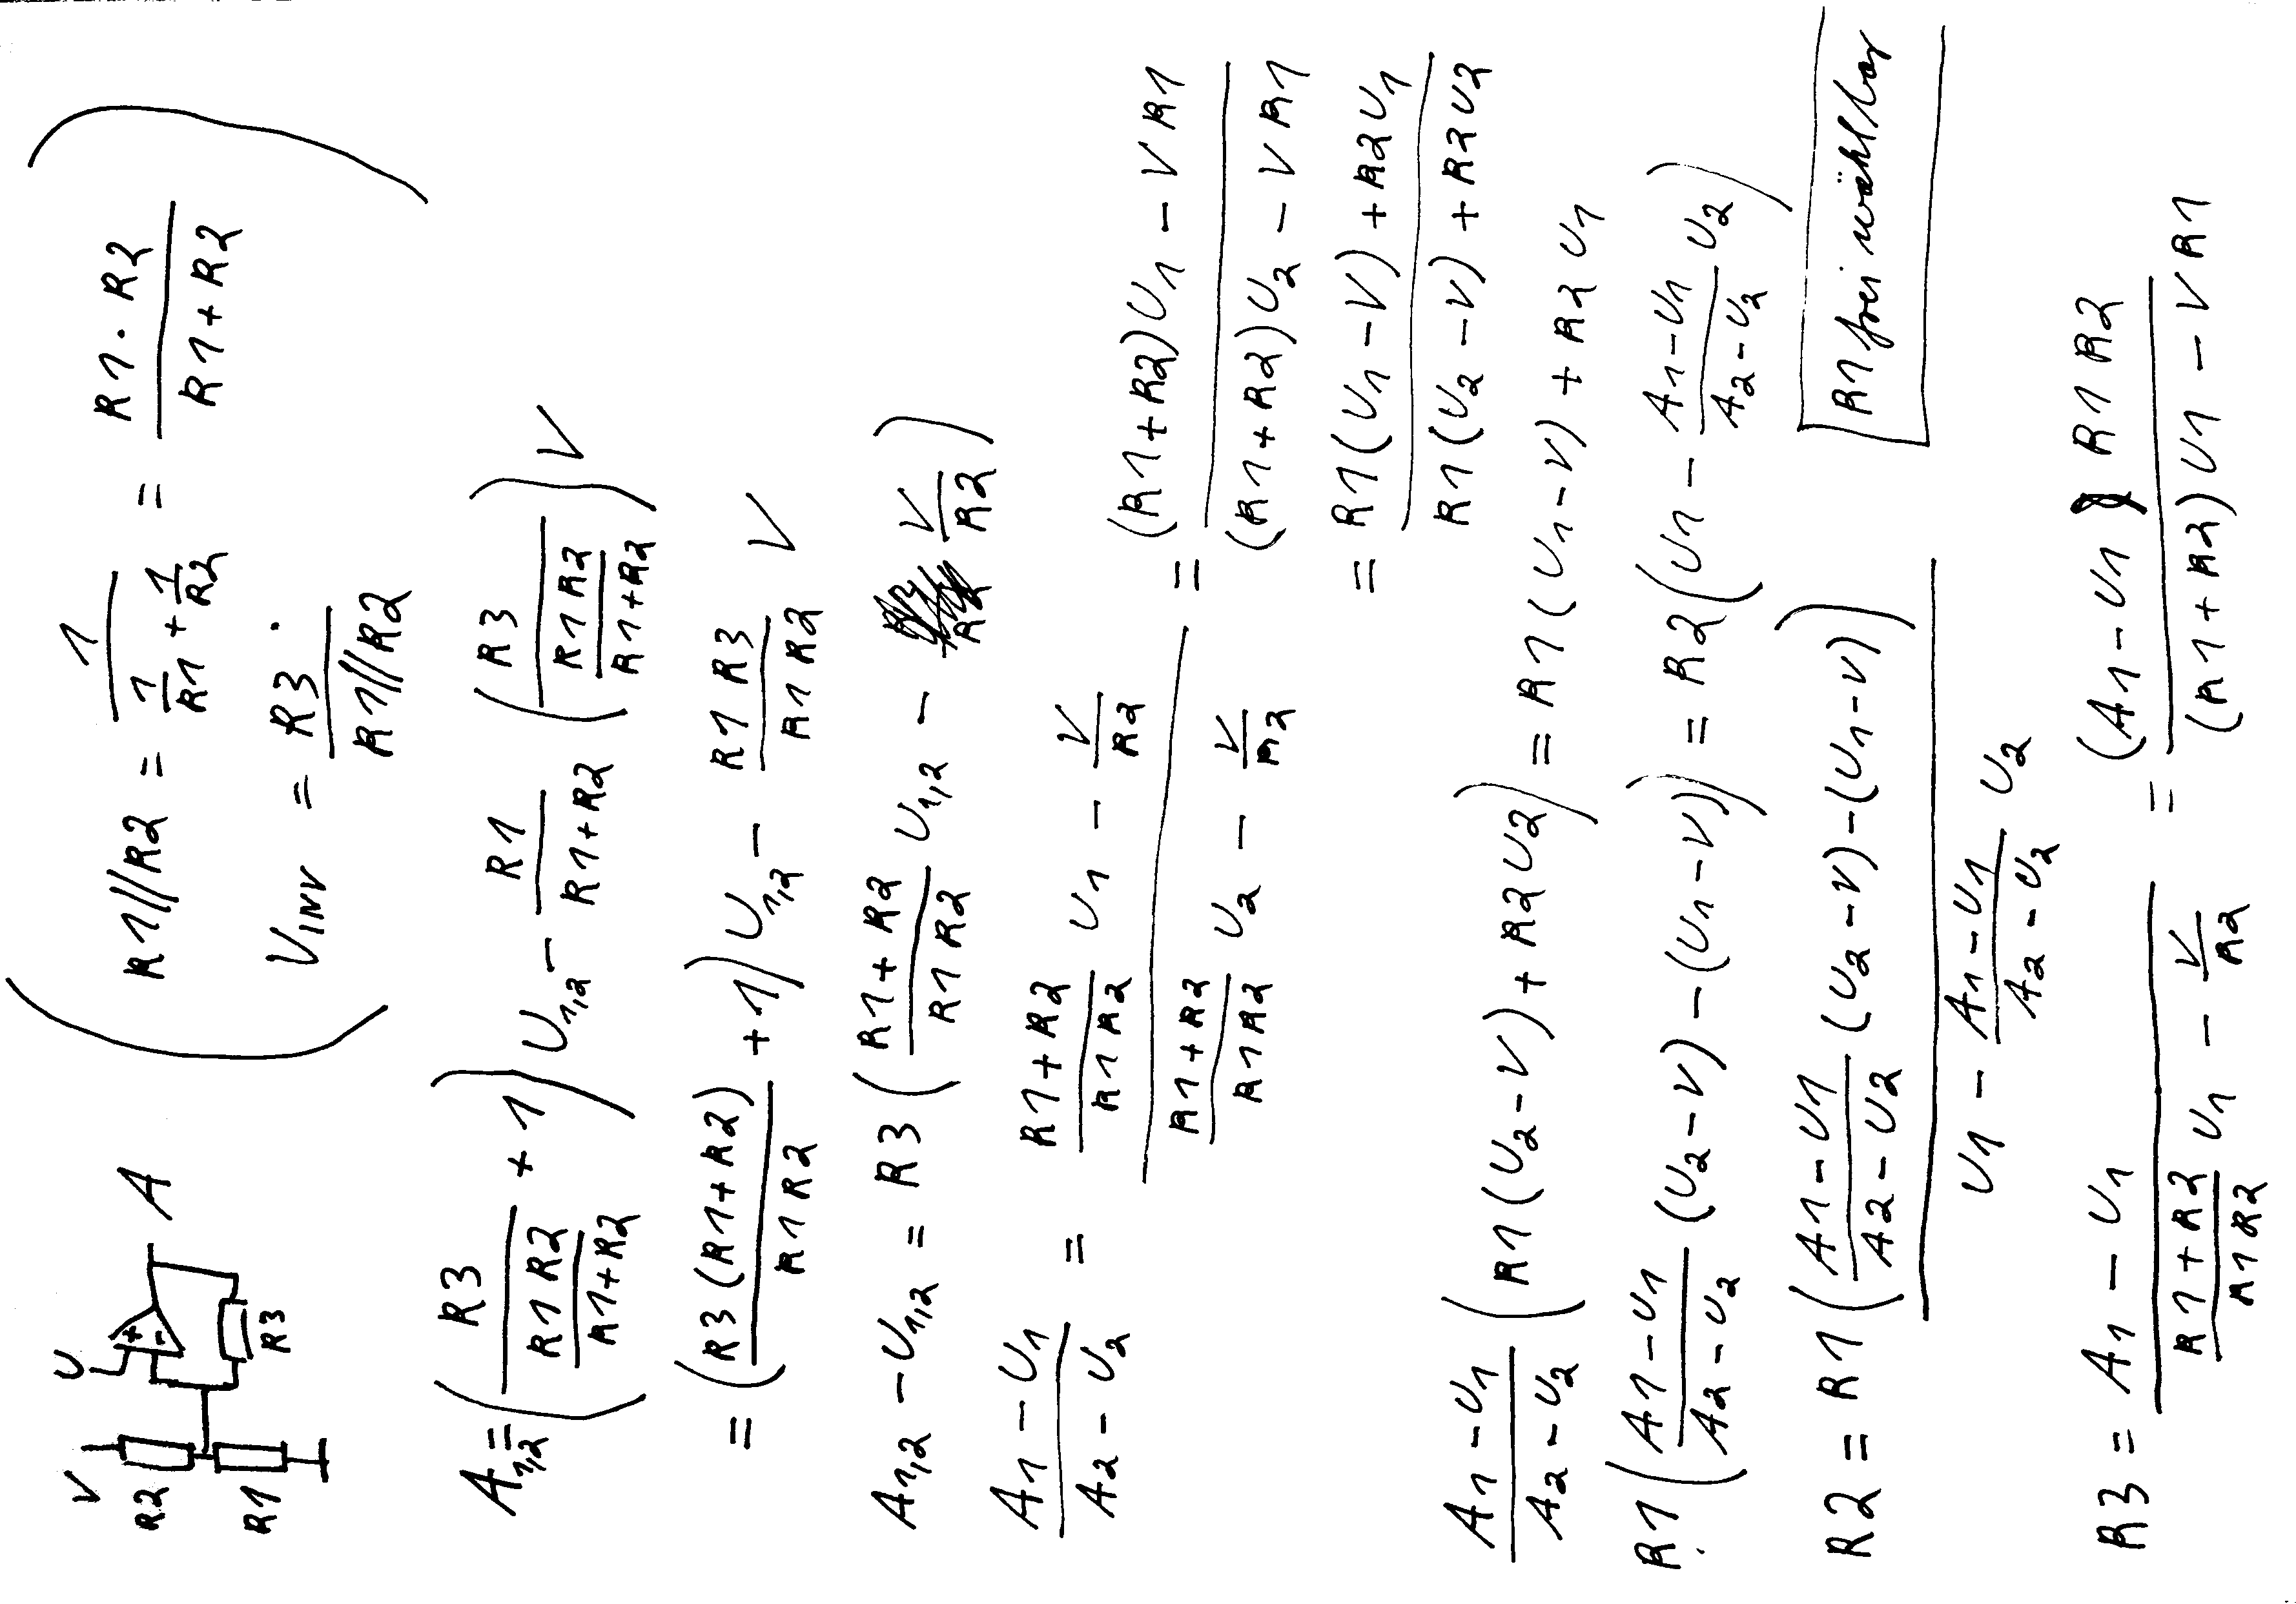 V
R2
R1
U
+
-
R3
A
( R1//R2 = 1/(1/R1 + 1/R2) = (R1 · R2)/(R1 + R2)
V_INV = R3 · / R1//R2 )
A₁,₂ = ( R3/((R1 R2)/(R1+R2)) + 1 ) U₁,₂ - R1/(R1+R2) ( R3/((R1 R2)/(R1+R2)) ) V
= ( (R3 (R1+R2))/(R1 R2) + 1 ) U₁,₂ - (R1 R3)/(R1 R2) V
A₁,₂ - U₁,₂ = R3 ( (R1+R2)/(R1 R2) U₁,₂ - V/R2 )
(A₁ - U₁)/(A₂ - U₂) = ((R1+R2)/(R1 R2) U₁ - V/R2)/((R1+R2)/(R1 R2) U₂ - V/R2) = ((R1+R2) U₁ - V R1)/((R1+R2) U₂ - V R1)
= (R1 (U₁ - V) + R2 U₁)/(R1 (U₂ - V) + R2 U2)
(A₁ - U₁)/(A₂ - U₂) ( R1 (U₂ - V) + R2 U2 ) = R1 (U₁ - V) + R2 U₁
R1 ( (A1 - U1)/(A₂ - U₂) (U₂ - V) - (U₁ - V) ) = R2 ( U1 - (A₁ - U1)/(A₂ - U₂) U₂ )
R2 = R1 ( (A1 - U1)/(A2 - U2) (U₂ - V) - (U₁ - V) ) / ( U1 - (A₁ - U₁)/(A₂ - U₂) U₂ )
R1 frei wählbar
R3 = (A₁ - U₁)/((R1+R2)/(R1 R2) U₁ - V/R2) = ((A₁ - U1) R1 R2)/((R1+R2) U1 - V R1)